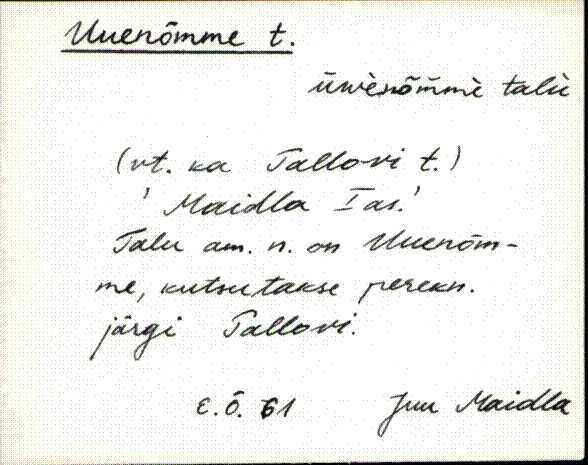 Uuenõmme t.
ūwènõm̄mè talù
(vt. ka Tallovi t.)
' Maidla I as.'
Talu am. n. on Uuenõm-
me, kutsutakse perekn.
järgi Tallovi.
E.Õ. 61 Juu Maidla